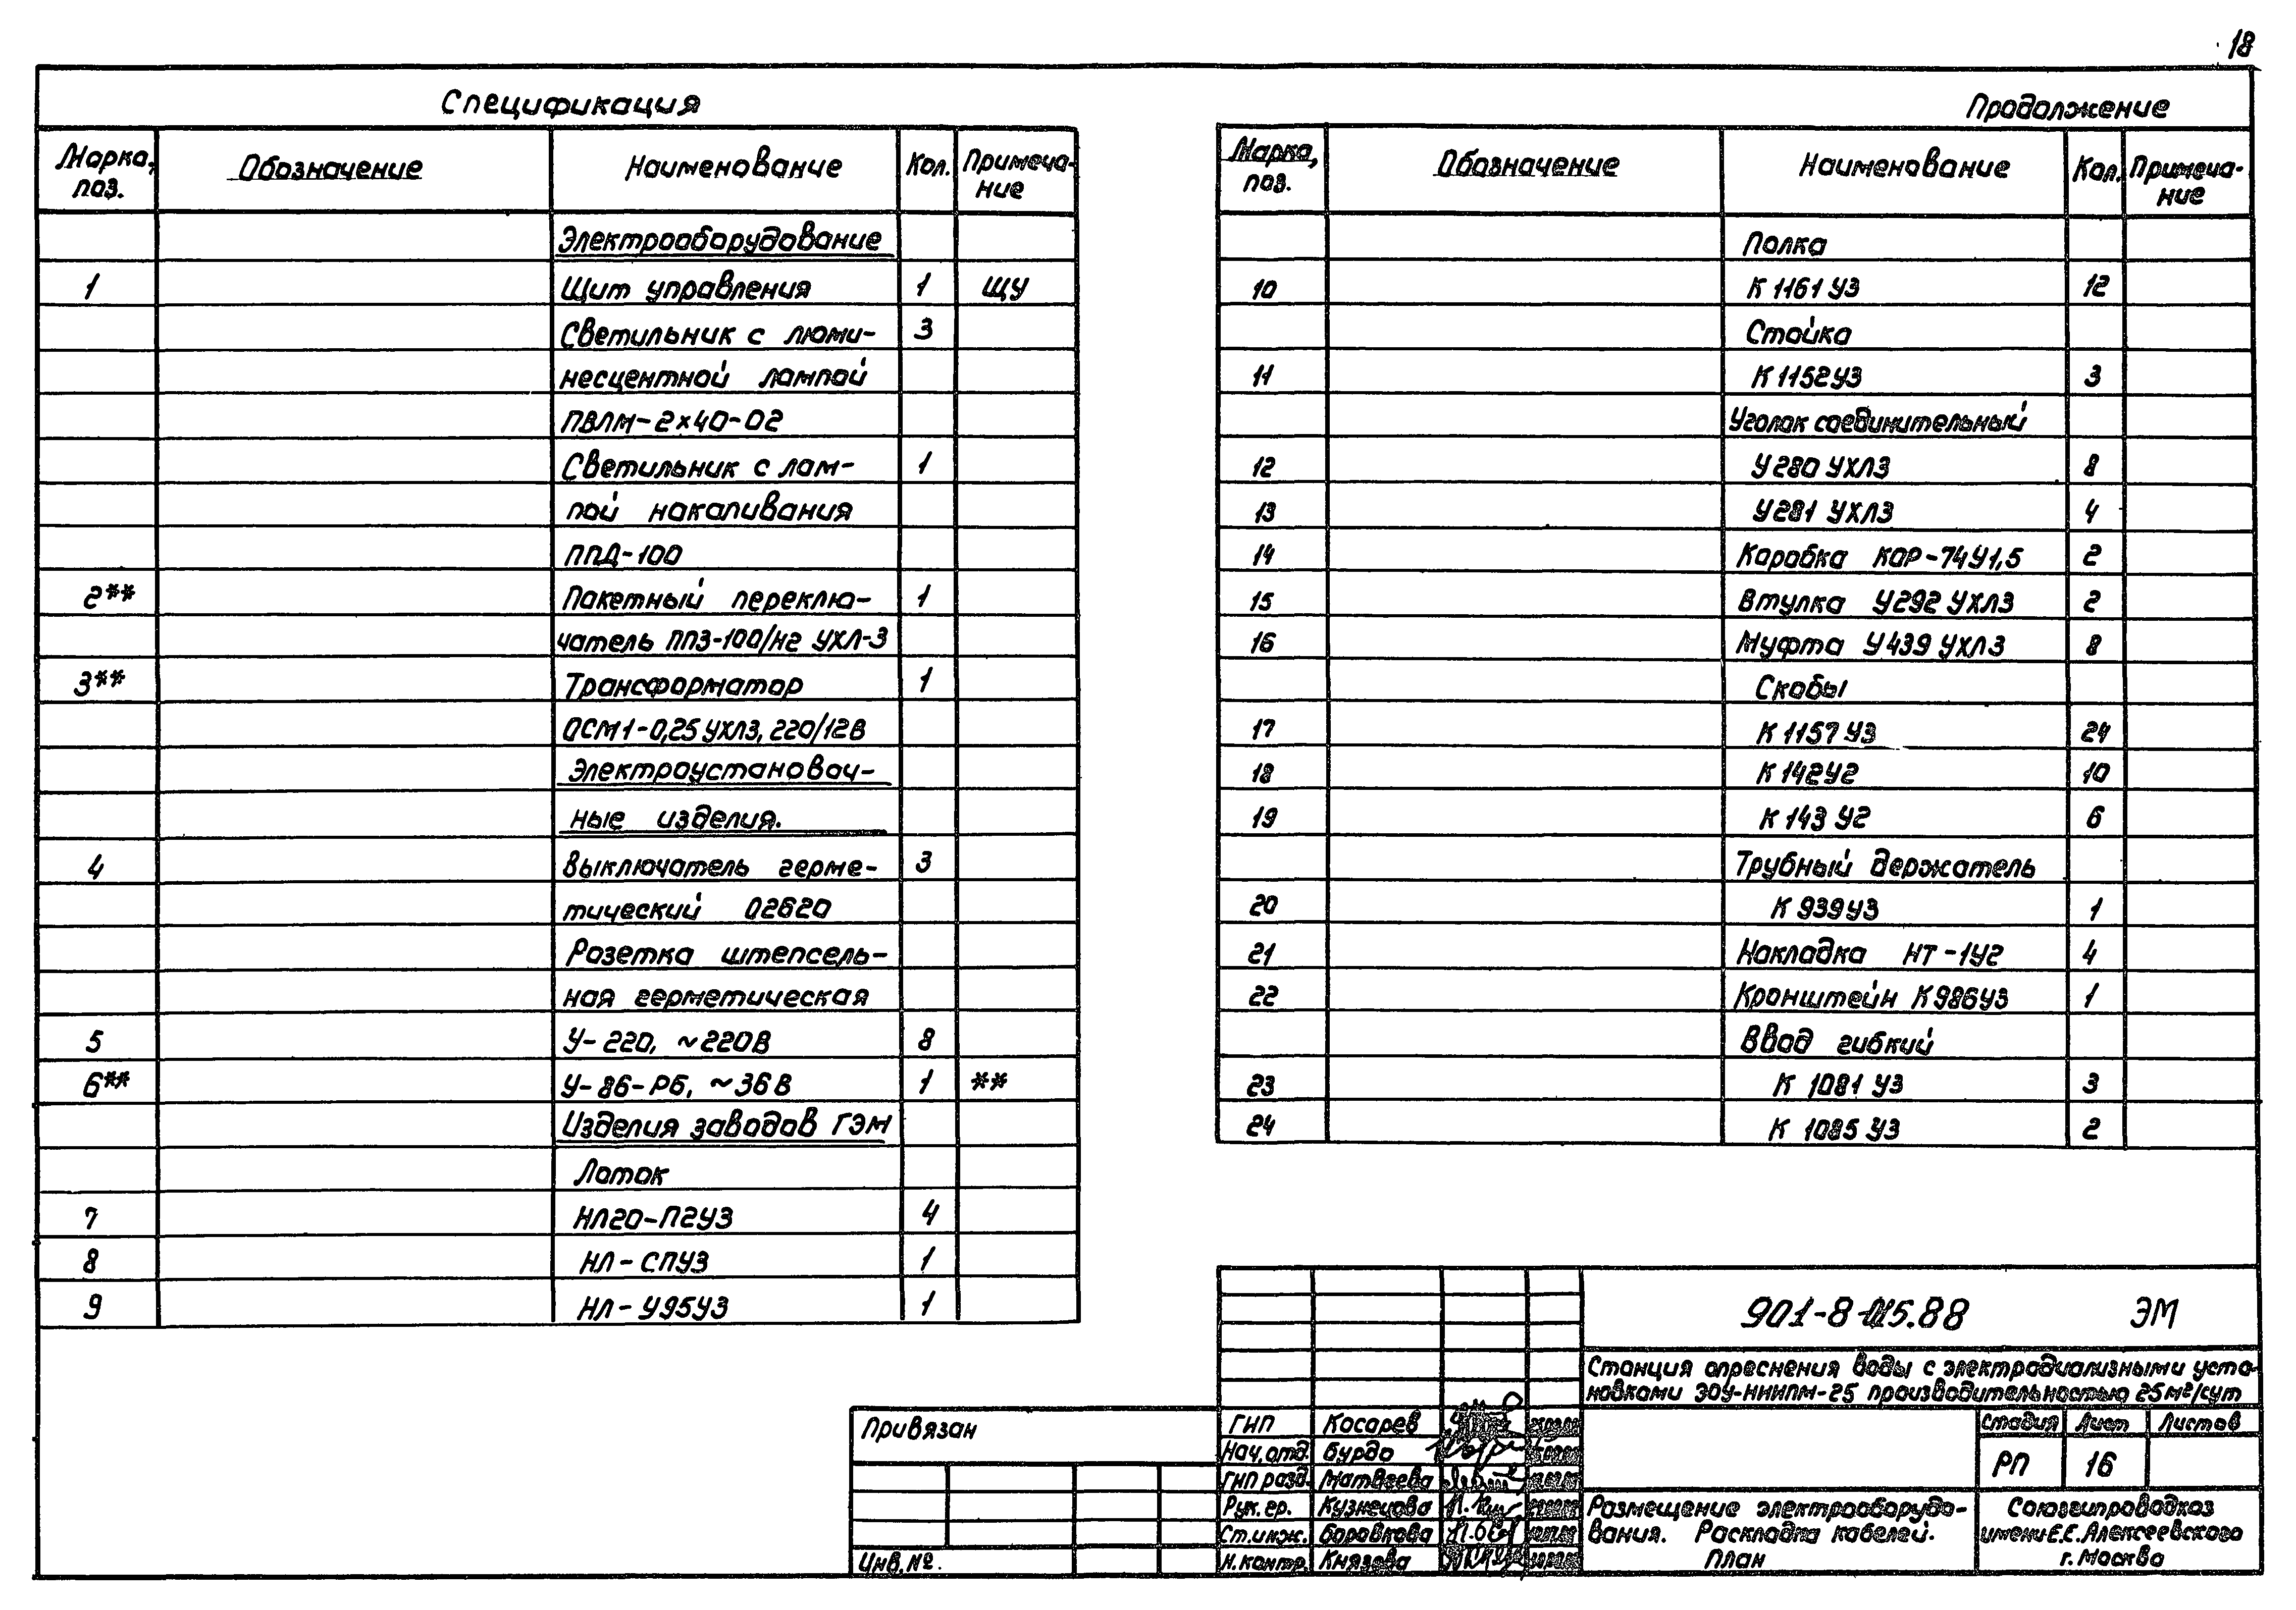 18
Спецификация
Марка, поз. Обозначение Наименование Кол. Примечание
Электрооборудование
1 Щит управления 1 ЩУ
Светильник с люми- 3
несцентной лампой
ПВЛМ-2×40-02
Светильник с лам- 1
пой накаливания
ППД-100
2** Пакетный переклю- 1
чатель ПП3-100/Н2 УХЛ-3
3** Трансформатор 1
ОСМ1-0,25 УХЛ3, 220/12В
Электроустановоч-
ные изделия.
4 Выключатель герме- 3
тический 02620
Розетка штепсель-
ная герметическая
5 У-220, ~220В 8
6** У-86-РБ, ~36В 1 **
Изделия заводов ГЭМ
Лоток
7 НЛ20-П2У3 4
8 НЛ-СПУ3 1
9 НЛ-У95У3 1
Продолжение
Марка, поз. Обозначение Наименование Кол. Примечание
Полка
10 К 1161 У3 12
Стойка
11 К 1152У3 3
Уголок соединительный
12 У280 УХЛ3 8
13 У281 УХЛ3 4
14 Коробка КОР-74У1,5 2
15 Втулка У292 УХЛ3 2
16 Муфта У439 УХЛ3 8
Скобы
17 К 1157 У3 24
18 К 142У2 10
19 К 143 У2 6
Трубный держатель
20 К 939У3 1
21 Накладка НТ-1У2 4
22 Кронштейн К986У3 1
Ввод гибкий
23 К 1081 У3 3
24 К 1085 У3 2
901-8-15.88 ЭМ
Станция опреснения воды с электродиализными уста-
новками ЭОУ-НИИПМ-25 производительностью 25м³/сут
Привязан
Инв.№.
ГИП Косарев
Нач.отд. Бурдо
ГИП разд. Матвеева
Рук.гр. Кузнецова
Ст.инж. Боровкова
Н.контр. Князева
Стадия Лист Листов
РП 16
Размещение электрооборудо-
вания. Раскладка кабелей.
План
Союзгипроводхоз
имени Е.Е.Алексеевского
г.Москва